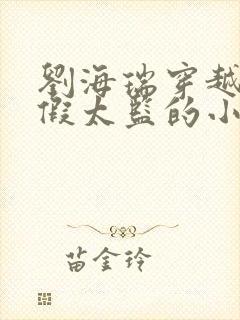 劉海瑞穿越
假太監的小
苗金玲